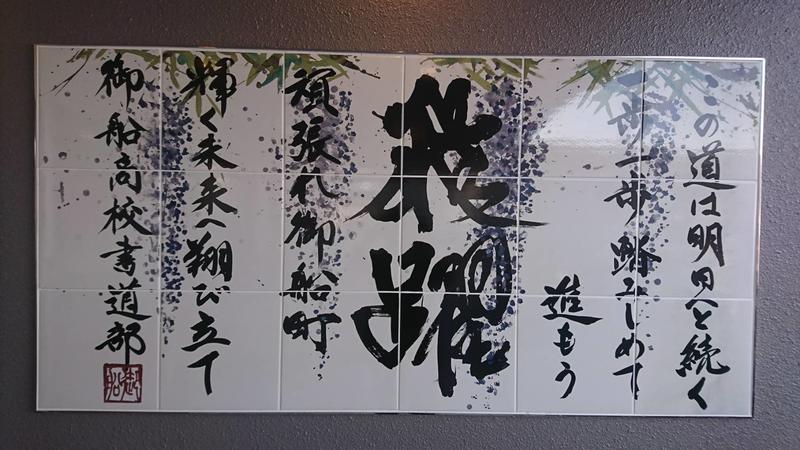 この道は明日へと続く
一歩一歩踏みしめて
進もう
飛躍
頑張れ御船町
輝く未来へ翔び立て
御船高校書道部
御船